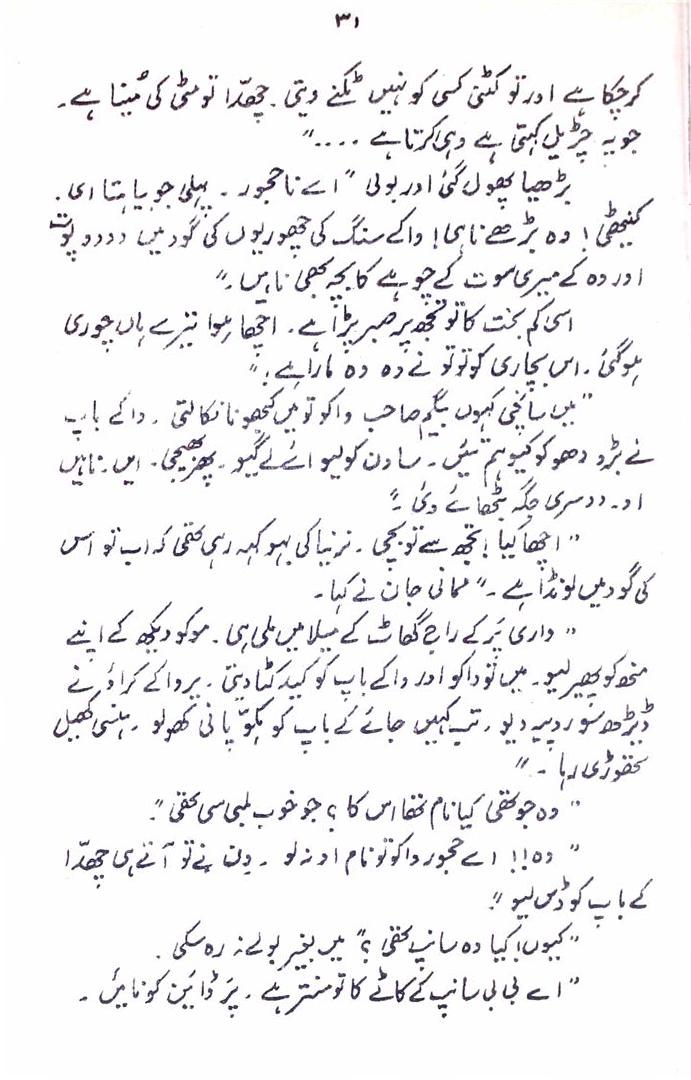 ۳۱
کر چکا ہے اور تو کٹنی کسی کو نہیں ٹکنے دیتی۔ چھدّا تو مٹی کی مُینا ہے۔
جو یہ چڑیل کہتی ہے وہی کرتا ہے ....”
بڑھیا پھول گئی اور بولی “اے نا حجور۔ پہلی جو بیاہتا ای۔
وہ بڑھے ناہی! واکے سنگ کی چھوریوں کی گود میں دو دو پوت
اور وہ کے میری سوت کے چوہے کا بچہ بھی ناہیں۔”
اسی کم بخت کا تو تجھ پر صبر پڑا ہے۔ اچھا ہوا تیرے ہاں چوری
ہو گئی۔ اس بچاری کو تو تو نے وہ وہ مارا ہے۔”
“میں ساچی کہوں بیگم صاحب واکو تو میں کچھو نا نکالتی۔ واکے باپ
نے بڑو دھوکو کیو ہم تئیں۔ ساون کو لیو اے لے گیو۔ پھر نہ بھیجی۔ ناہیں
او۔ دوسری جگہ بٹھائے دئی۔”
“اچھا کیا! تجھ سے تو بچی۔ نرنیا کی بہو کہہ رہی تھی کہ اب تو اس
کی گود میں لونڈا ہے۔” ممانی جان نے کہا۔
“واری پَر کے راج گھاٹ کے میلا میں ملی ہی۔ موکو دیکھ کے اپنے
منھ کو پھیر لیو۔ میں تو واکو اور واکے باپ کو کید کٹا دیتی۔ پر واکے کراؤ نے
ڈیڑھ سو روپیہ دیو۔ تب کہیں جائے کے باپ کو ہکّو پانی کھولو۔ ہنسی کھیل
تھوڑی رہا۔”
“وہ جو تھی کیا نام تھا اس کا؟ جو خوب لمبی سی تھی”۔
“وہ!! اے حجور واکو تو نام او نہ لو۔ وِن نے تو آتے ہی چھدّا
کے باپ کو ڈس لیو”۔
“کیوں! کیا وہ سانپ تھی؟” میں بغیر بولے نہ رہ سکی۔
“اے بی بی سانپ کے کاٹے کا تو منتر ہے۔ پَر ڈائین کو نائیں۔